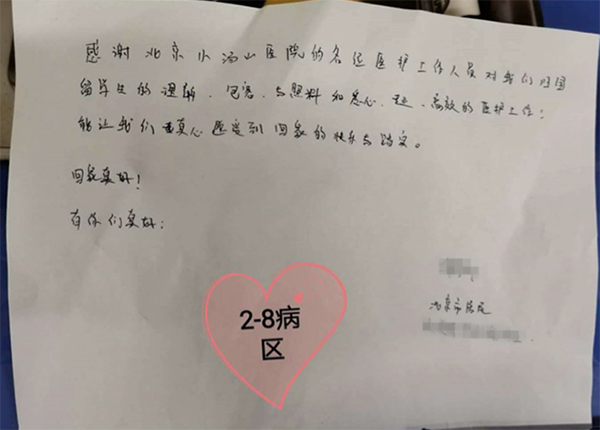 感谢北京小汤山医院的各位医护工作人员对我们归国
留学生的理解、包容、与照料和悉心、高效的医护工作!
能让我们真心感受到回家的快乐与踏实。
回家真好!
有你们真好!
2-8病
区
北京市